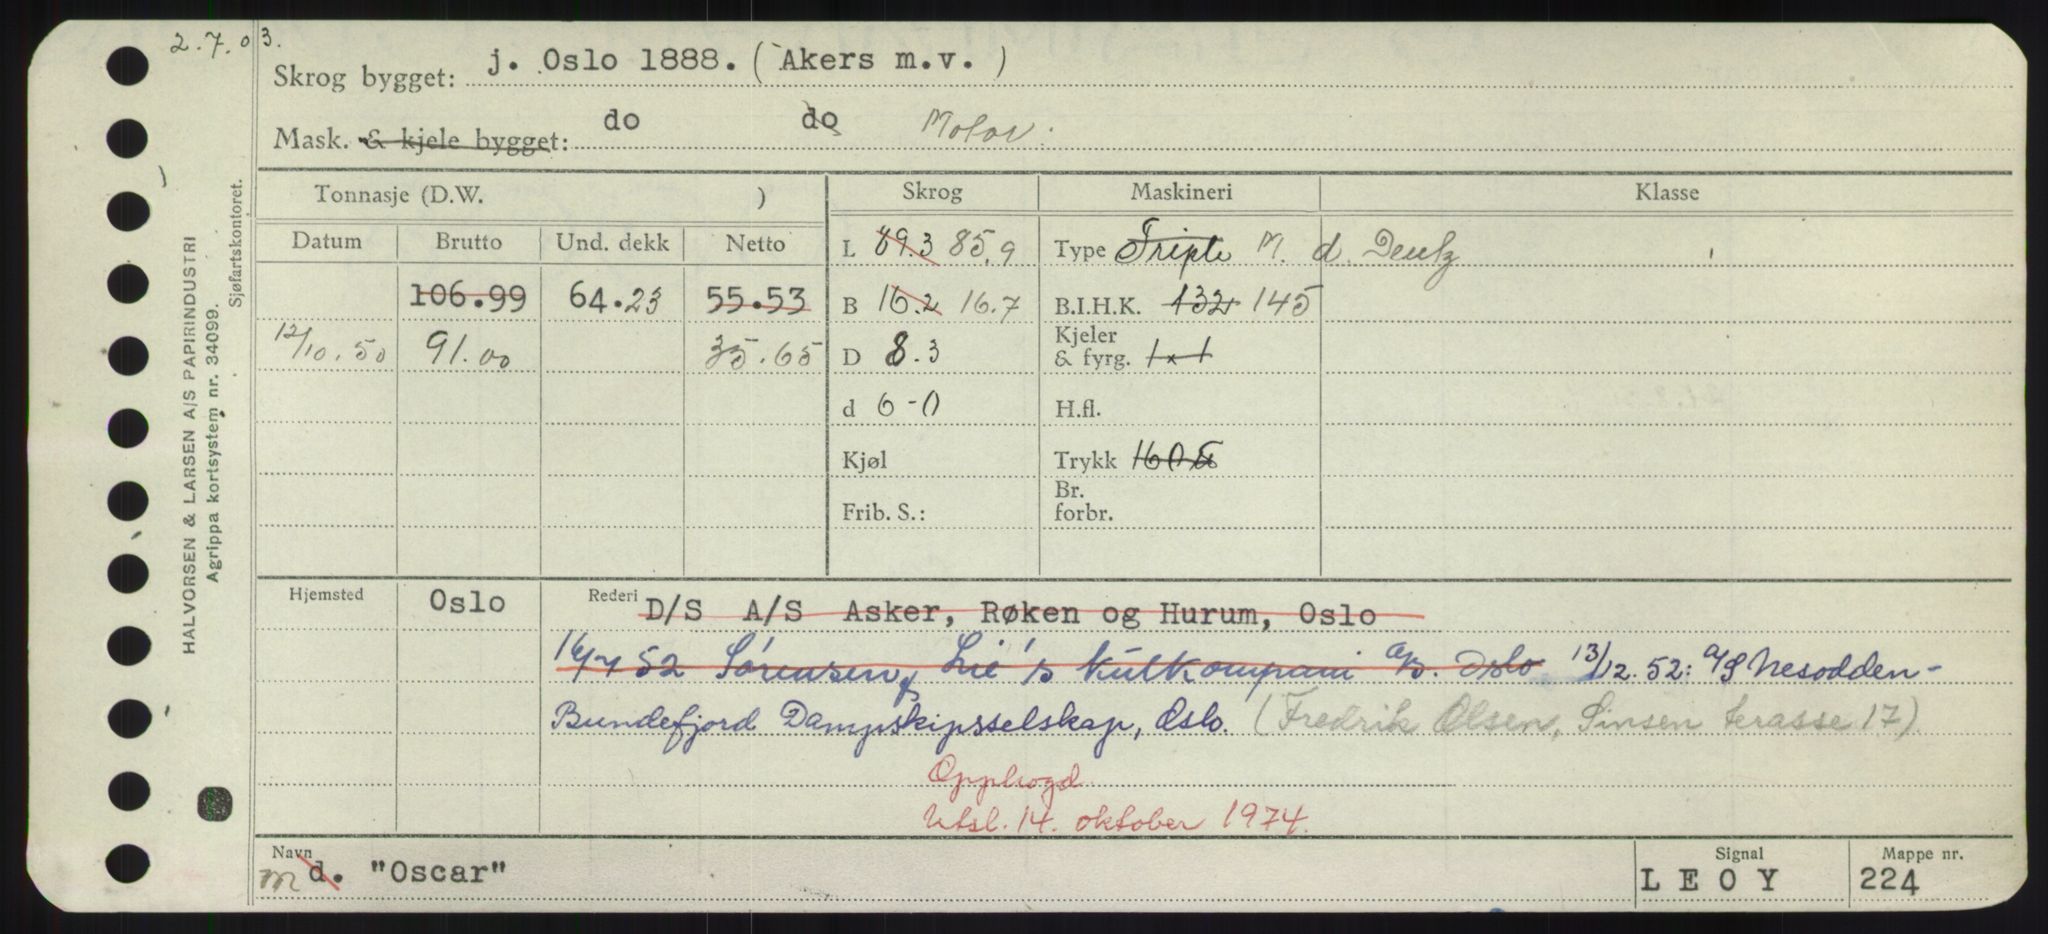 2.7.03.
Skrog bygget: j. Oslo 1888. (Akers m.v.)
Mask. & kjele bygget: do do Motor.
HALVORSEN & LARSEN A/S PAPIRINDUSTRI
Agrippa kortsystem nr. 34099.
Sjøfartskontoret.
Tonnasje (D.W. ) Skrog Maskineri Klasse
Datum Brutto Und. dekk Netto L 89.3 85.9 Type Triple M. d. Deutz
106.99 64.23 55.53 B 16.2 16.7 B.I.H.K. 132 145
12/10.50 91.00 35.65 D 8.3 Kjeler & fyrg. 1x1
d 6-0 H.fl.
Kjøl Trykk 160
Frib. S.: Br. forbr.
Hjemsted Oslo Rederi D/S A/S Asker, Røken og Hurum, Oslo
52 Sørensen & Lie's Kullkompani A/S. Oslo 13/12.52: A/S Nesodden-
Bundefjord Dampskipsselskap, Oslo. (Fredrik Olsen, Sinsen terasse 17)
Opphogd
Utsl. 14. oktober 1974.
Navn Signal Mappe nr.
m d. "Oscar" LEOY 224